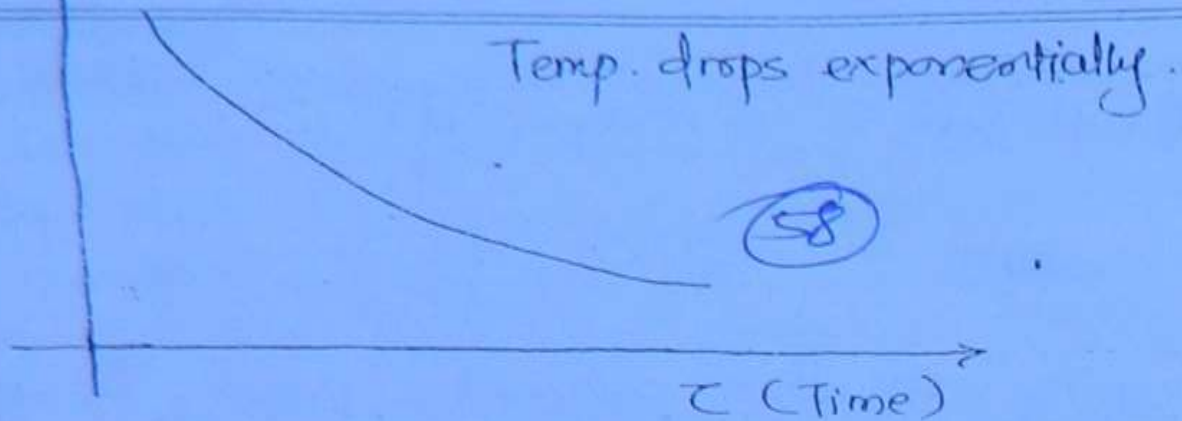 Temp. drops exponentially.
58
τ (Time)